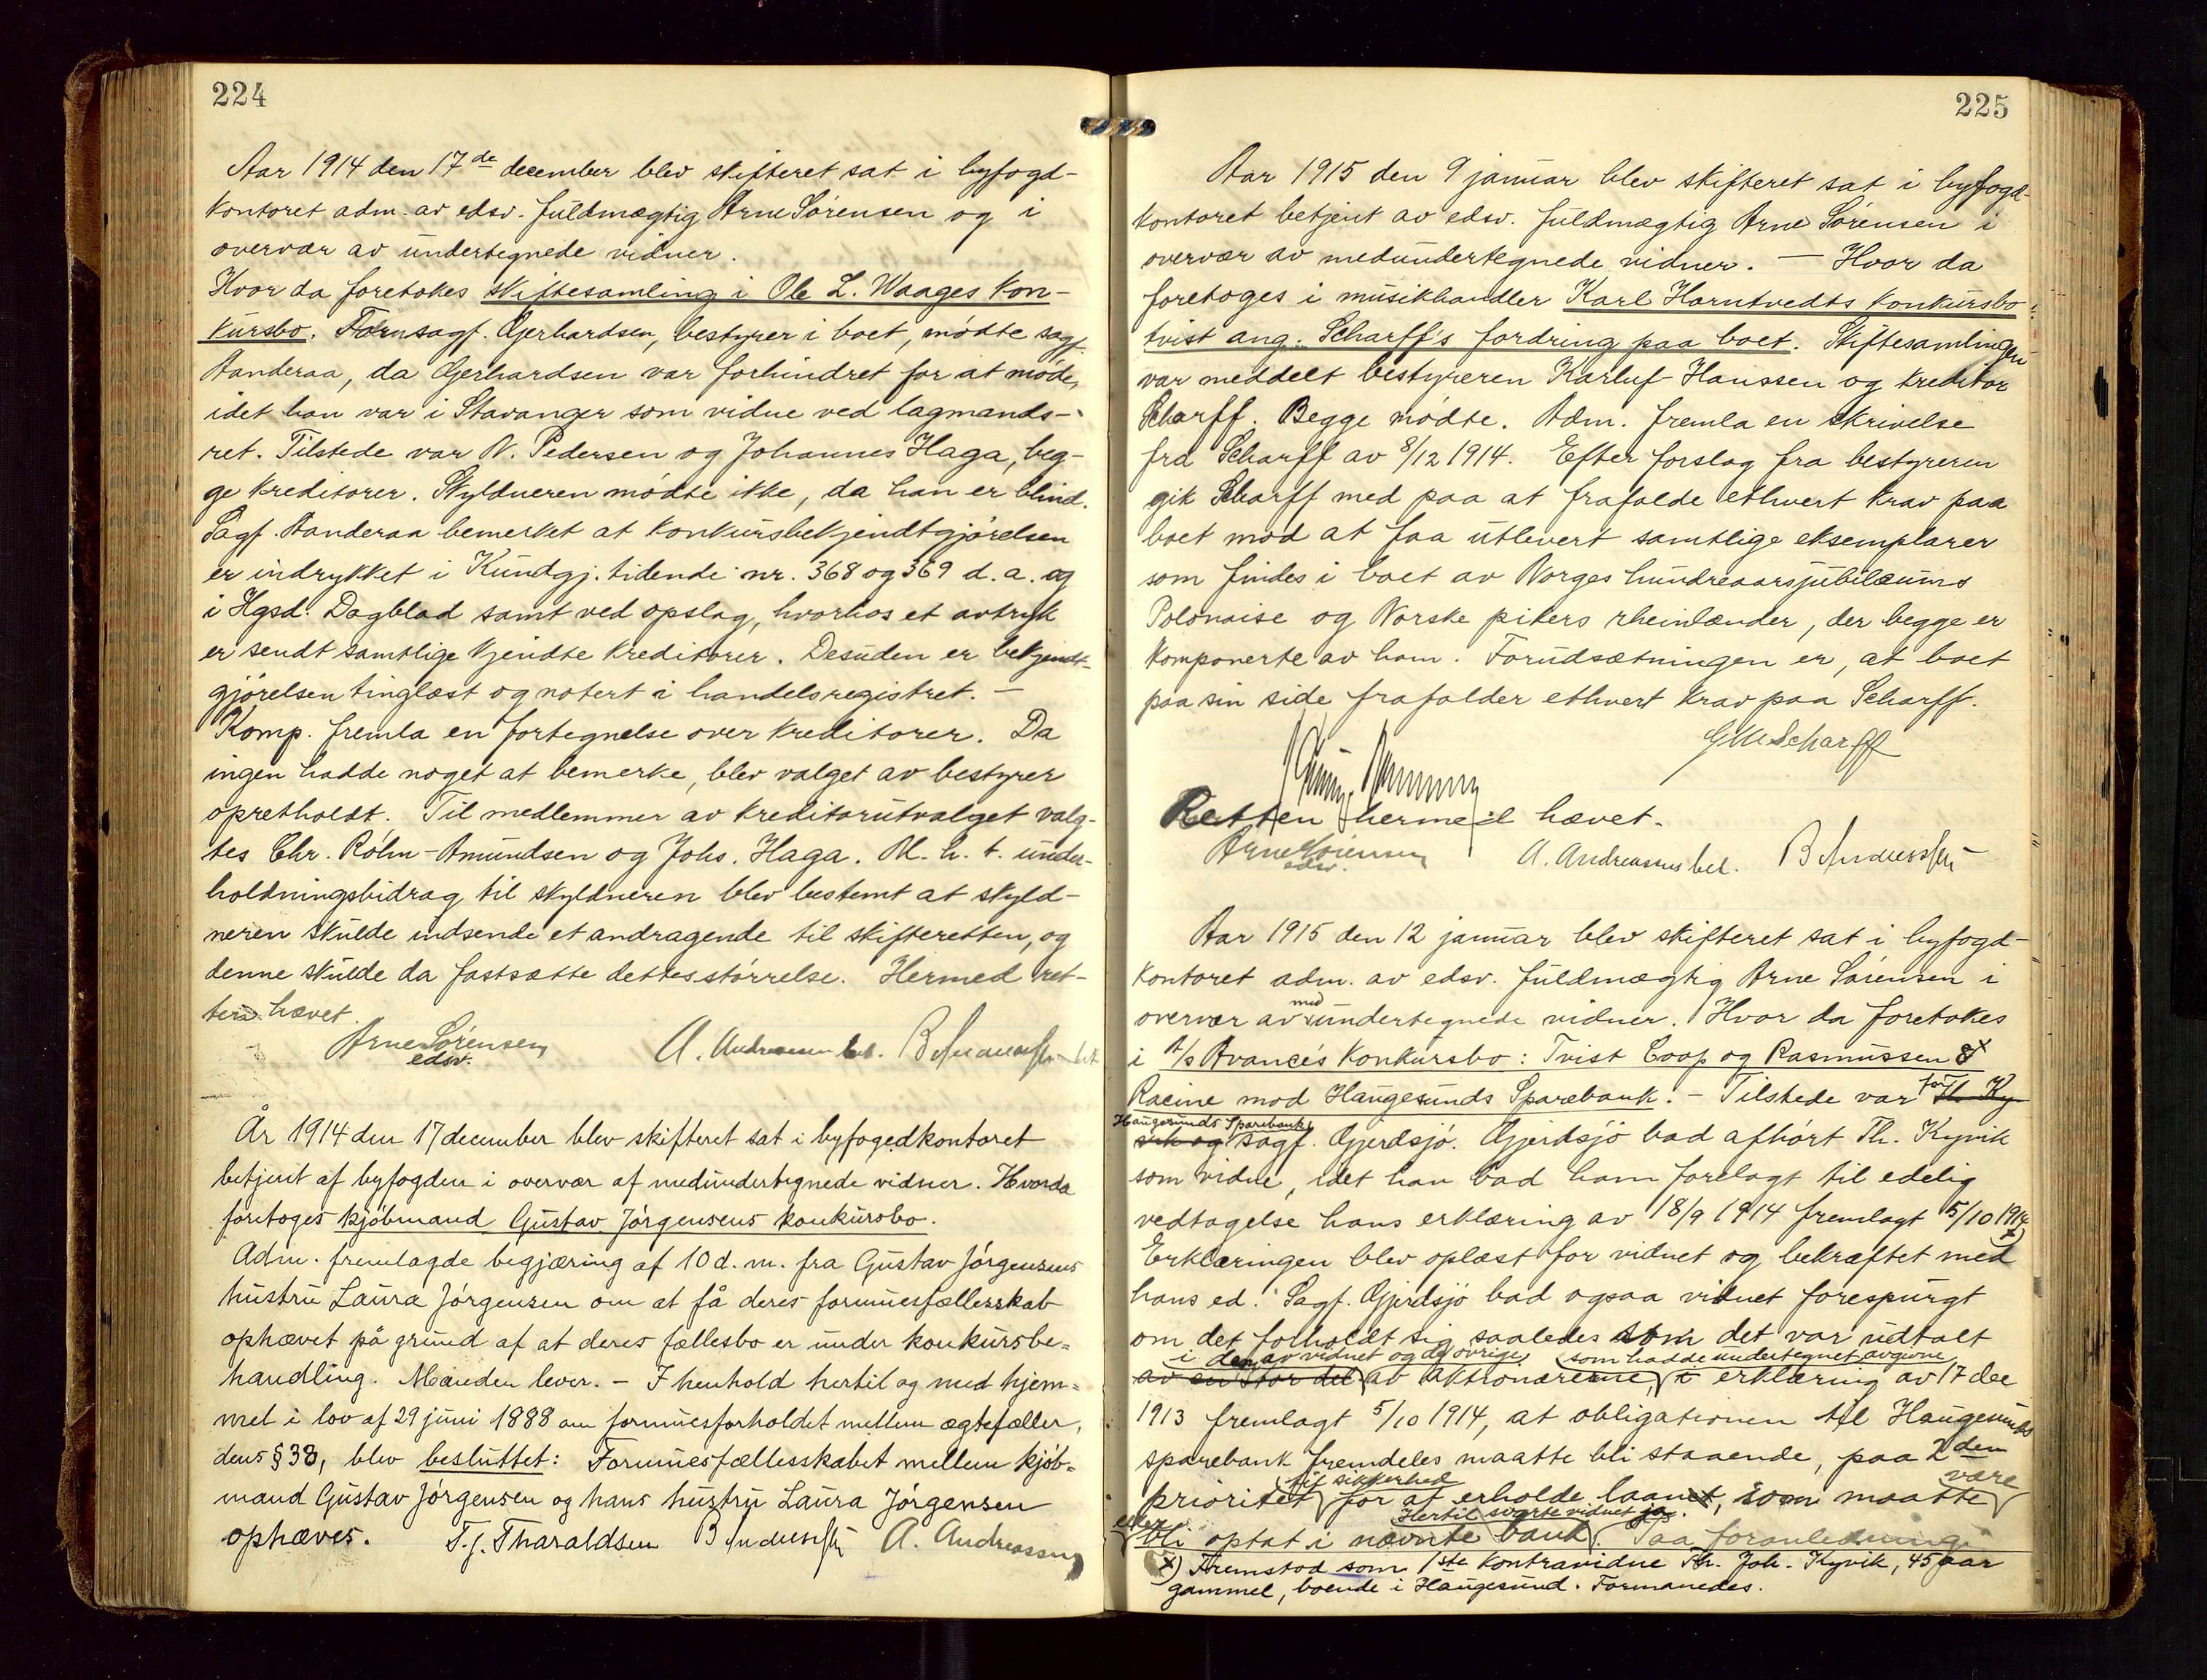 224
Aar 1914 den 17de december blev skifteret sat i byfogd-
kontoret adm. av edsv. fuldmægtig Arne Sørensen og i
overvær av undertegnede vidner.
Hvor da foretokes skiftesamling i Ole L. Waages kon-
kursbo. For sagf. Gjerhardsen, bestyrer i boet, mødte sagf.
Aanderaa, da Gjerhardsen var forhindret for at møde,
idet han var i Stavanger som vidne ved lagmands-
ret. Tilstede var N. Pedersen og Johannes Haga, beg-
ge kreditorer. Skyldneren mødte ikke, da han er blind.
Sagf. Aanderaa bemerket at konkursbekjendtgjørelsen
er indrykket i Kundgj. tidende nr. 368 og 369 d. a. og
i Hgsd. Dagblad samt ved opslag, hvorhos et avtryk
er sendt samtlige kjendte kreditorer. Desuden er bekjendt-
gjørelsen tinglæst og notert i handelsregistret. —
Komp. fremla en fortegnelse over kreditorer. Da
ingen hadde noget at bemerke, blev valget av bestyrer
opretholdt. Til medlemmer av kreditorutvalget valg-
tes Chr. Røhn-Amundsen og Johs. Haga. M. h. t. under-
holdningsbidrag til skyldneren blev bestemt at skyld-
neren skulde indsende et andragende til skifteretten, og
denne skulde da fastsætte dettes størrelse. Hermed ret-
ten hævet.
Arne Sørensen A. Andreassen bet.
edsv.
År 1914 den 17 december blev skifteret sat i byfogedkontoret
betjent af byfogden i overvær af medundertegnede vidner. Hvorda
foretoges kjøbmand Gustav Jørgensens konkursbo.
Adm. fremlagde begjæring af 10 d. m. fra Gustav Jørgensens
hustru Laura Jørgensen om at få deres formuesfællesskab
ophævet på grund af at deres fællesbo er under konkursbe=
handling. Manden lever. — I henhold hertil og med hjem=
mel i lov af 29 juni 1888 om formuesforholdet mellem ægtefæller,
dens § 38, blev besluttet: Formuesfællesskabet mellem kjøb=
mand Gustav Jørgensen og hans hustru Laura Jørgensen
ophæves. T. J. Tharaldsen A. Andreassen
225
Aar 1915 den 9 januar blev skifteret sat i byfogd-
kontoret betjent av edsv. fuldmægtig Arne Sørensen i
overvær av medundertegnede vidner. — Hvor da
foretoges i musikhandler Karl Horntvedts konkursbo:
tvist ang. Scharff's fordring paa boet. Skiftesamlingen
var meddelt bestyreren Karluf Hanssen og kreditor
Scharff. Begge mødte. Adm. fremla en skrivelse
fra Scharff av 8/12 1914. Efter forslag fra bestyreren
gik Scharff med paa at frafalde ethvert krav paa
boet mod at faa utlevert samtlige eksemplarer
som findes i boet av Norges hundreaarsjubilæums
Polonaise og Norske pikers rheinlænder, der begge er
komponerte av ham. Forudsætningen er, at boet
paa sin side frafalder ethvert krav paa Scharff.
Scharff
Retten hermed hævet.
Arne Sørensen A. Andreassen bet.
edsv.
Aar 1915 den 12 januar blev skifteret sat i byfogd-
kontoret adm. av edsv. fuldmægtig Arne Sørensen i
med
overvær av undertegnede vidner. Hvor da foretokes
i A/s Avance's konkursbo: Tvist Coop og Rasmussen &
Racine mod Haugesunds Sparebank. — Tilstede var for Th. Ky-
Haugesunds Sparebank
vik og sagf. Gjerdsjø. Gjerdsjø bad afhørt Th. Kyvik
som vidne, idet han bad ham forelagt til edelig
vedtagelse hans erklæring av 18/9 1914 fremlagt 5/10 1914.
x)
Erklæringen blev oplæst for vidnet og bekræftet med
hans ed. Sagf. Gjerdsjø bad ogsaa vidnet forespurgt
om det forholdt sig saaledes som det var udtalt
i den av vidnet og de øvrige som hadde undertegnet avgivne
av en stor del av aktionærerne, i erklæring av 17 dec
1913 fremlagt 5/10 1914, at obligationen til Haugesunds
sparebank fremdeles maatte bli staaende, paa 2den
til sikkerhed være
prioritet for at erholde laanet, som maatte
Hertil svarte vidnet ja.
eller
bli optat i nævnte bank. Paa foranledning
x) Fremstod som 1ste kontravidne Th. Joh. Kyvik, 45 aar
gammel, boende i Haugesund. Formanedes.